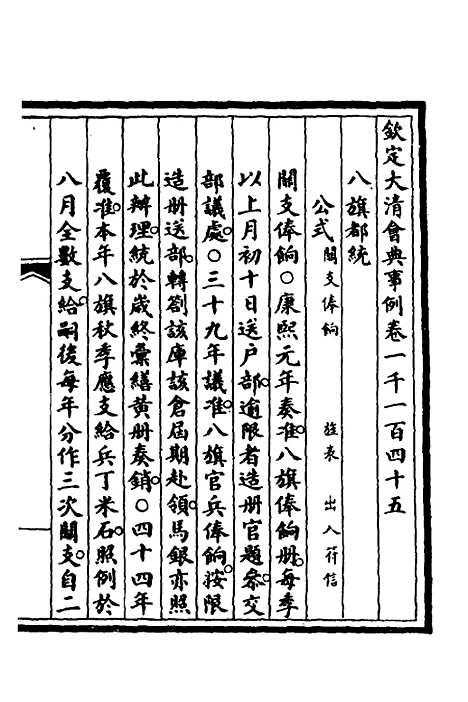 欽定大清會典事例卷一千一百四十五
八旗都統
公式 關支俸餉 旌表 出入符信
關支俸餉○康熙元年奏准。八旗俸餉册。每季
以上月初十日送户部。逾限者造册官題參。交
部議處。○三十九年議准。八旗官兵俸餉。按限
造册送部。轉劄該庫該倉屆期赴領。馬銀亦照
此辦理。統於歲終彙繕黄册奏銷。○四十四年
覆准。本年八旗秋季應支給兵丁米石。照例於
八月全數支給。嗣後每年分作三次關支。自二